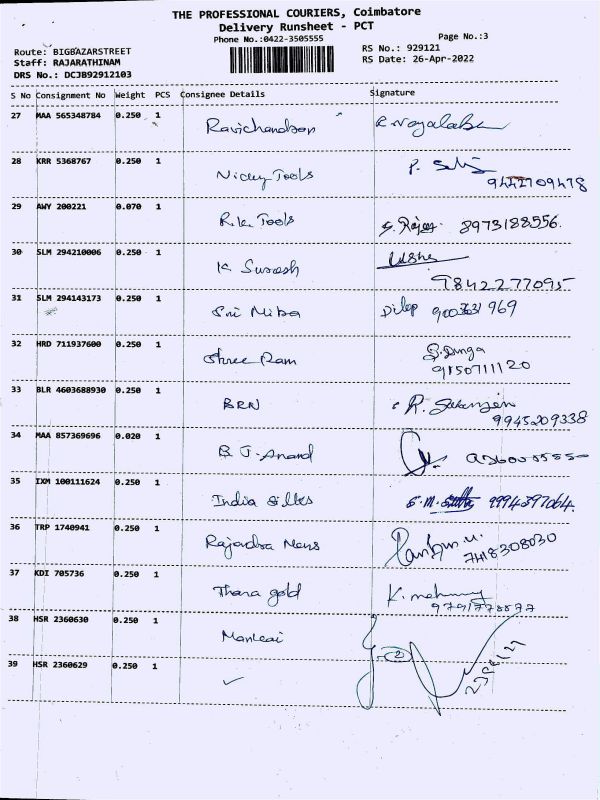 THE PROFESSIONAL COURIERS, Coimbatore
Delivery Runsheet - PCT
Phone No.:0422-3505555
Page No.:3
Route: BIGBAZARSTREET
RS No.: 929121
Staff: RAJARATHINAM
RS Date: 26-Apr-2022
DRS No.: DCJB92912103
S No Consignment No Weight PCS Consignee Details Signature
27 MAA 565348784 0.250 1 Ravichandran
28 KRR 5368767 0.250 1 Nicky Tools P. 9442709478
29 AWY 200221 0.070 1 R.K. Tools 8973188556.
30 SLM 294210006 0.250 1 K Suresh 9842277095
31 SLM 294143173 0.250 1 Sri Dilep 969
32 HRD 711937600 0.250 1 Shree Ram S. Durga
9150711120
33 BLR 4603688930 0.250 1 BRN R. 9945209338
34 MAA 857369696 0.020 1 B J. Anand
35 IXM 100111624 0.250 1 India Silks S.M. 9994397064.
36 TRP 1740941 0.250 1 Rajendra Mens 7418308030
37 KDI 705736 0.250 1 Thara gold K.
38 HSR 2360630 0.250 1
39 HSR 2360629 0.250 1